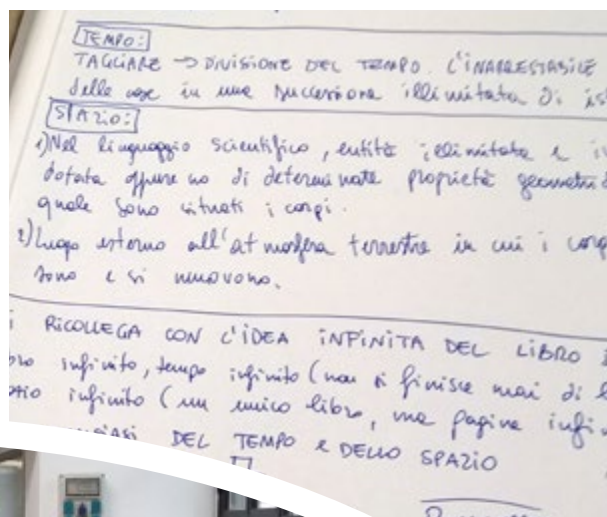 TEMPO:
TAGLIARE → DIVISIONE DEL TEMPO. L'INARRESTABILE
delle cose in una successione illimitata di is
SPAZIO:
1) Nel linguaggio scientifico, entità illimitata e i
dotata oppure no di determinate proprietà geometri
quale sono situati i corpi.
2) Luogo esterno all'atmosfera terrestre in cui i corp
sono e si muovono.
I RICOLLEGA CON L'IDEA INFINITA DEL LIBRO
bro infinito, tempo infinito (non si finisce mai di l
zio infinito (un unico libro, ma pagine infini
DEL TEMPO E DELLO SPAZIO